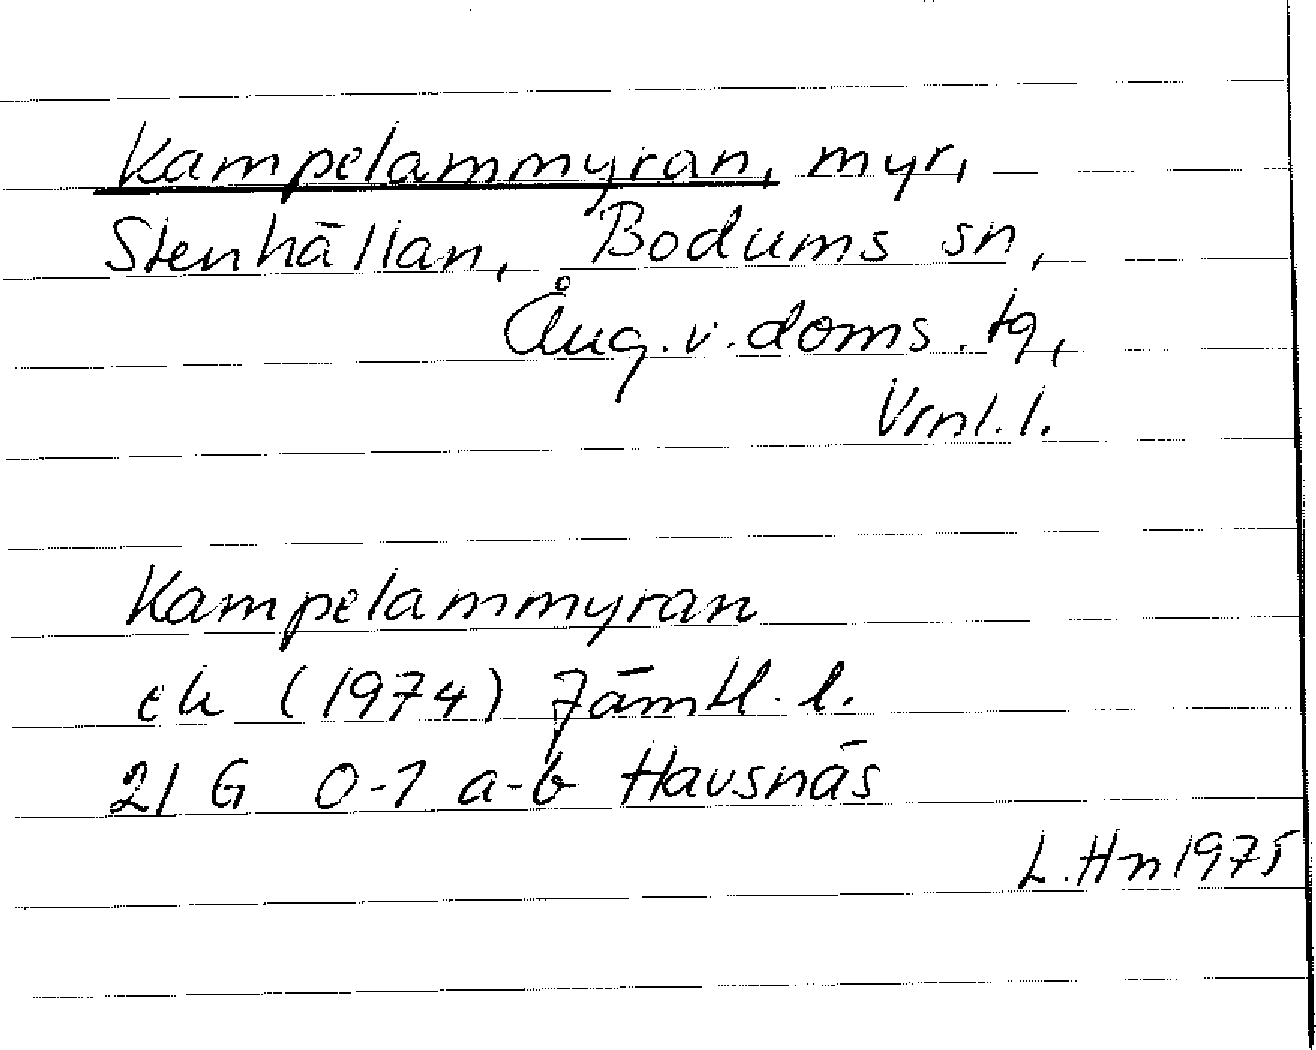 Kampelammyran, myr,
Stenhällan, Bodums sn,
Ång.v.doms.tg,
Vrnl.l.
Kampelammyran
ek (1974) Jämtl.l.
21 G 0-1 a-b Havsnäs
L.Hn 1975